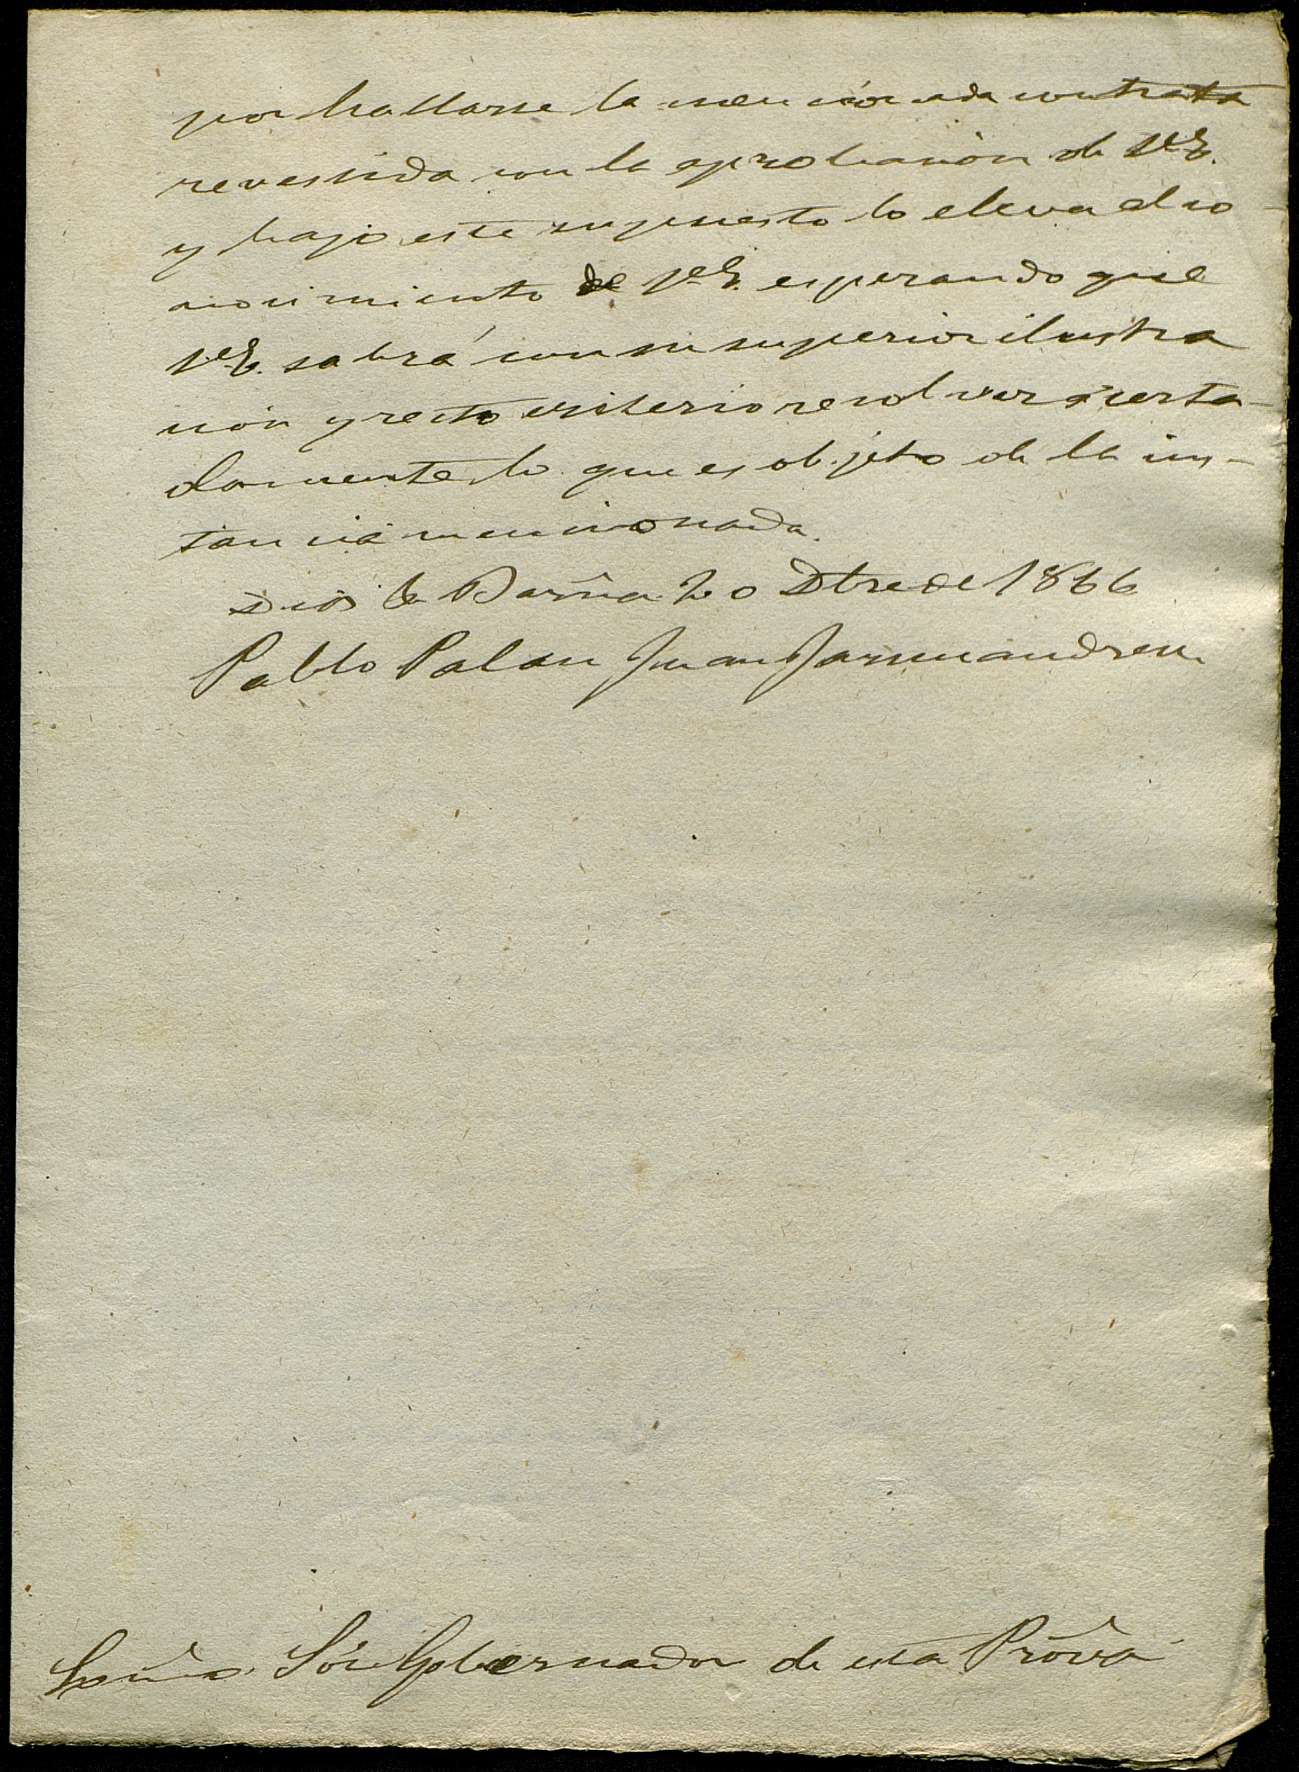 por hallarse la mencionada contrata
revestida con la aprobación de V.E.
y bajo este supuesto lo eleva al co-
nocimiento de V.E. esperando que
V.E. sabrá con su superior ilustra
ción y recto criterio resolver acerta-
damente lo que es objeto de la ins-
tancia mencionada.
Dios &a Barña 20 Dbre de 1866
Pablo Palau Juan Jaumandreu
Exmo. Sór Gobernador de esta Prova